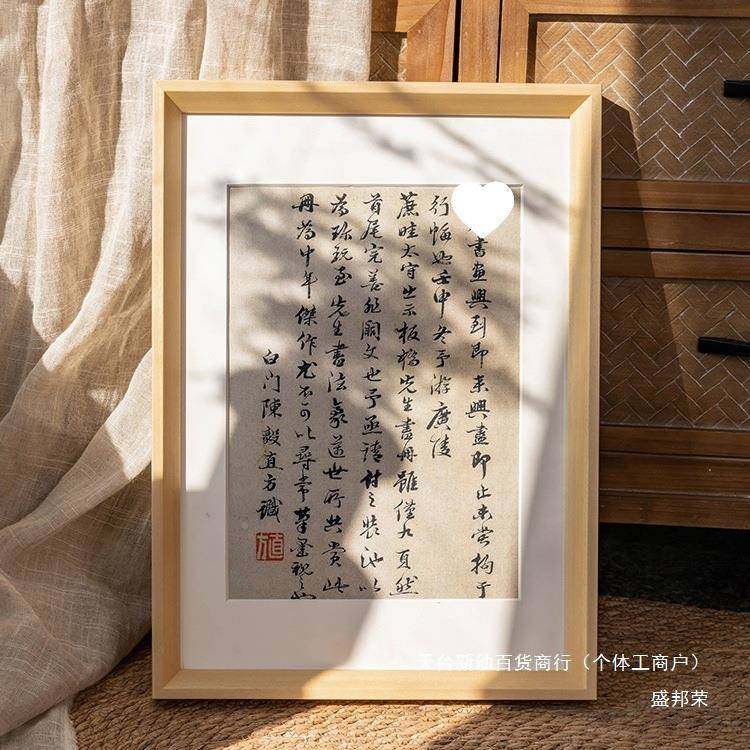 書畫興到即来興盡即止未嘗拘于
行幅如壬申冬予游廣陵
蔗畦太守出示板橋先生書冊雖僅九頁然
首尾完善非闕文也予亟請付之裝池以
為珎玩至先生書法世所共賞此
冊為中年傑作尤不可以尋常筆墨視之也
白門陳毅直方識
直方
百货商行（个体工商户）
盛邦荣